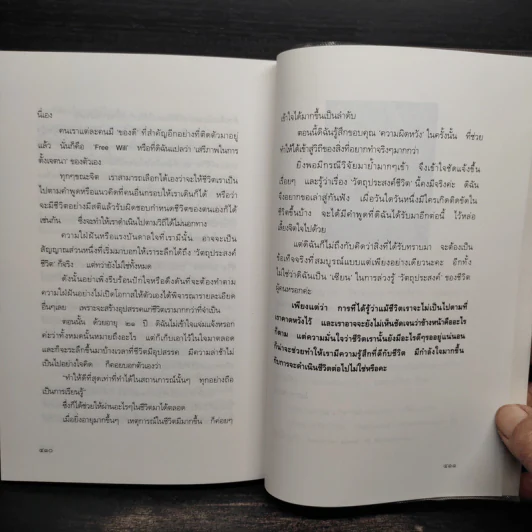 นี่เอง
คนเราแต่ละคนมี 'ของดี' ที่สำคัญอีกอย่างที่ติดตัวมาอยู่
แล้ว นั่นก็คือ 'Free Will' หรือที่ดิฉันแปลว่า 'เสรีภาพในการ
ตั้งเจตนา' ของตัวเอง
ทุกๆขณะจิต เราสามารถเลือกได้เองว่าจะให้ชีวิตเราเป็น
ไปตามคำพูดหรือแนวคิดที่คนอื่นกรอบให้เราเดินก็ได้ หรือว่า
จะมีชีวิตอย่างมีสติแล้วรับผิดชอบกำหนดชีวิตของตนเองก็ได้
เช่นกัน ซึ่งจะทำให้เราดำเนินไปตามวิถีได้ไม่นอกทาง
ความใฝ่ฝันหรือแรงบันดาลใจที่เรามีนั้น อาจจะเป็น
สัญญาณส่วนหนึ่งที่เริ่มมาบอกให้เราระลึกได้ถึง 'วัตถุประสงค์
ชีวิต' ก็จริง แต่หาใช่ทั้งหมด
ดังนั้นอย่าเพิ่งรีบร้อนปักใจหรือดึงดันที่จะต้องทำตาม
ความใฝ่ฝันอย่างไม่เปิดโอกาสให้ตัวเองได้พิจารณารายละเอียด
อื่นๆเลย เพราะจะสร้างอุปสรรคแก่ชีวิตเรามากกว่าที่จำเป็น
ตอนนั้น ด้วยอายุ ๒๑ ปี ดิฉันไม่เข้าใจแจ่มแจ้งหรอก
ค่ะว่าทั้งหมดนั้นหมายถึงอะไร แต่ก็เก็บเอาไว้ในใจมาตลอด
และก็จะระลึกขึ้นมาบ้างเวลาที่ชีวิตมีอุปสรรค มีความล่าช้าไม่
เป็นไปอย่างใจคิด ก็คอยบอกตัวเองว่า
"ทำให้ดีที่สุดเท่าที่ทำได้ในสถานการณ์นั้นๆ ทุกอย่างถือ
เป็นการเรียนรู้"
ซึ่งก็ได้ช่วยให้ผ่านอะไรๆในชีวิตมาได้ตลอด
เมื่อยิ่งอายุมากขึ้นๆ เหตุการณ์ในชีวิตมีมากขึ้น ก็ค่อยๆ
๔๑๐
เข้าใจได้มากขึ้นเป็นลำดับ
ตอนนี้ดิฉันรู้สึกขอบคุณ 'ความผิดหวัง' ในครั้งนั้น ที่ช่วย
ทำให้ได้เข้าสู่วิถีของสิ่งที่อยากทำจริงๆมากกว่า
ยิ่งพอมีกรณีวิจัยมาย้ำมากๆเข้า จึงเข้าใจชัดแจ้งขึ้น
เรื่อยๆ และรู้ว่าเรื่อง 'วัตถุประสงค์ชีวิต' นี้คงมีจริงค่ะ ดิฉัน
จึงอยากขอเล่าสู่กันฟัง เผื่อว่าวันใดวันหนึ่งมีใครเกิดติดขัดใน
ชีวิตขึ้นบ้าง จะได้มีคำพูดที่ดิฉันได้รับมาอีกต่อนี้ ไว้หล่อ
เลี้ยงจิตใจไปด้วย
แต่ดิฉันก็ไม่ถึงกับคิดว่าสิ่งที่ได้รับทราบมา จะต้องเป็น
ข้อเท็จจริงที่สมบูรณ์แบบแต่เพียงอย่างเดียวนะคะ อีกทั้ง
ไม่ใช่ว่าดิฉันเป็น 'เซียน' ในการล่วงรู้ 'วัตถุประสงค์' ของชีวิต
ผู้คนหรอกค่ะ
เพียงแต่ว่า การที่ได้รู้ว่าแม้ชีวิตเราจะไม่เป็นไปตามที่
เราคาดหวังไว้ และเราอาจจะยังไม่เห็นชัดเจนว่าข้างหน้าคืออะไร
ก็ตาม แต่ความมั่นใจว่าชีวิตเรานั้นยังมีอะไรดีๆรออยู่แน่นอน
ก็น่าจะช่วยทำให้เรามีความรู้สึกที่ดีกับชีวิต มีกำลังใจมากขึ้น
กับการจะดำเนินชีวิตต่อไปไม่ใช่หรือคะ
๔๑๑